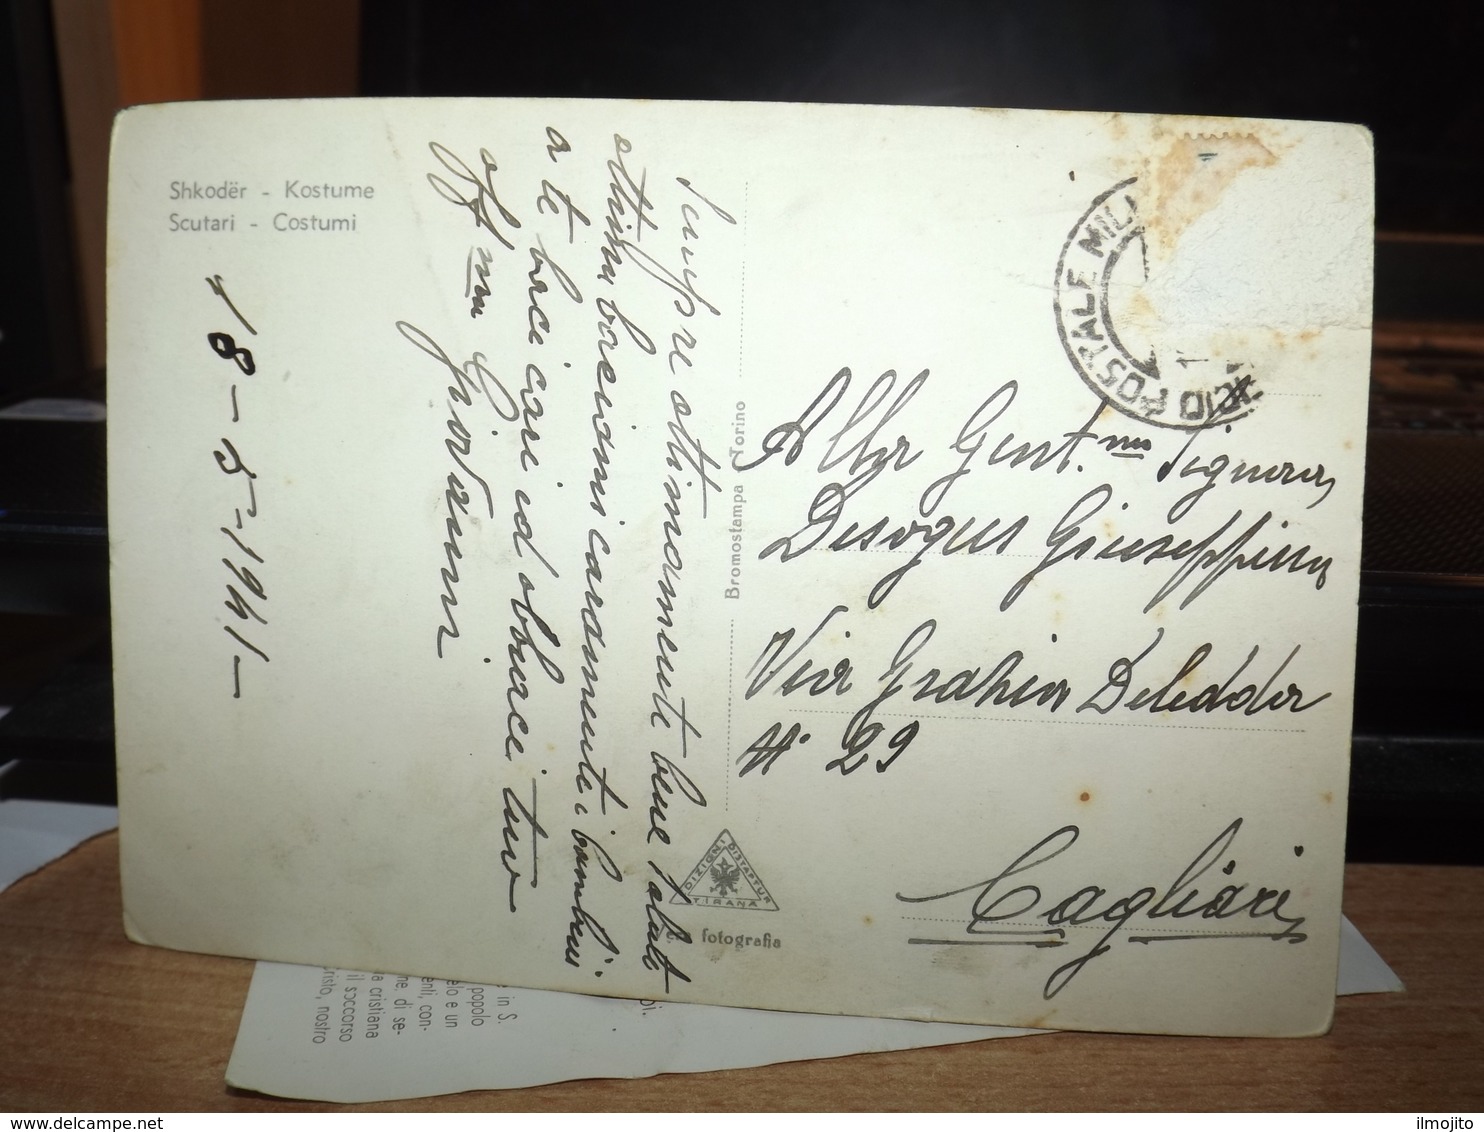 Shkodër - Kostume
Scutari - Costumi
18-5-1941-
Sempre ottimamente bene saluti
ottimi baciami caramente i bambini
a te baci cari ed abbracci tuo
aff.mo Giovanni
Bromostampa Torino
UFFICIO POSTALE MILI
Alla Gent.ma Signora
Desogus Giuseppina
Via Grazia Deledda
N° 29
Cagliari
EDIZIONI
DISTAPTUR
TIRANA
fotografia
in S.
popolo
elo e un
enti, con-
ne, di se-
a cristiana
il soccorso
risto, nostro
ilmojito